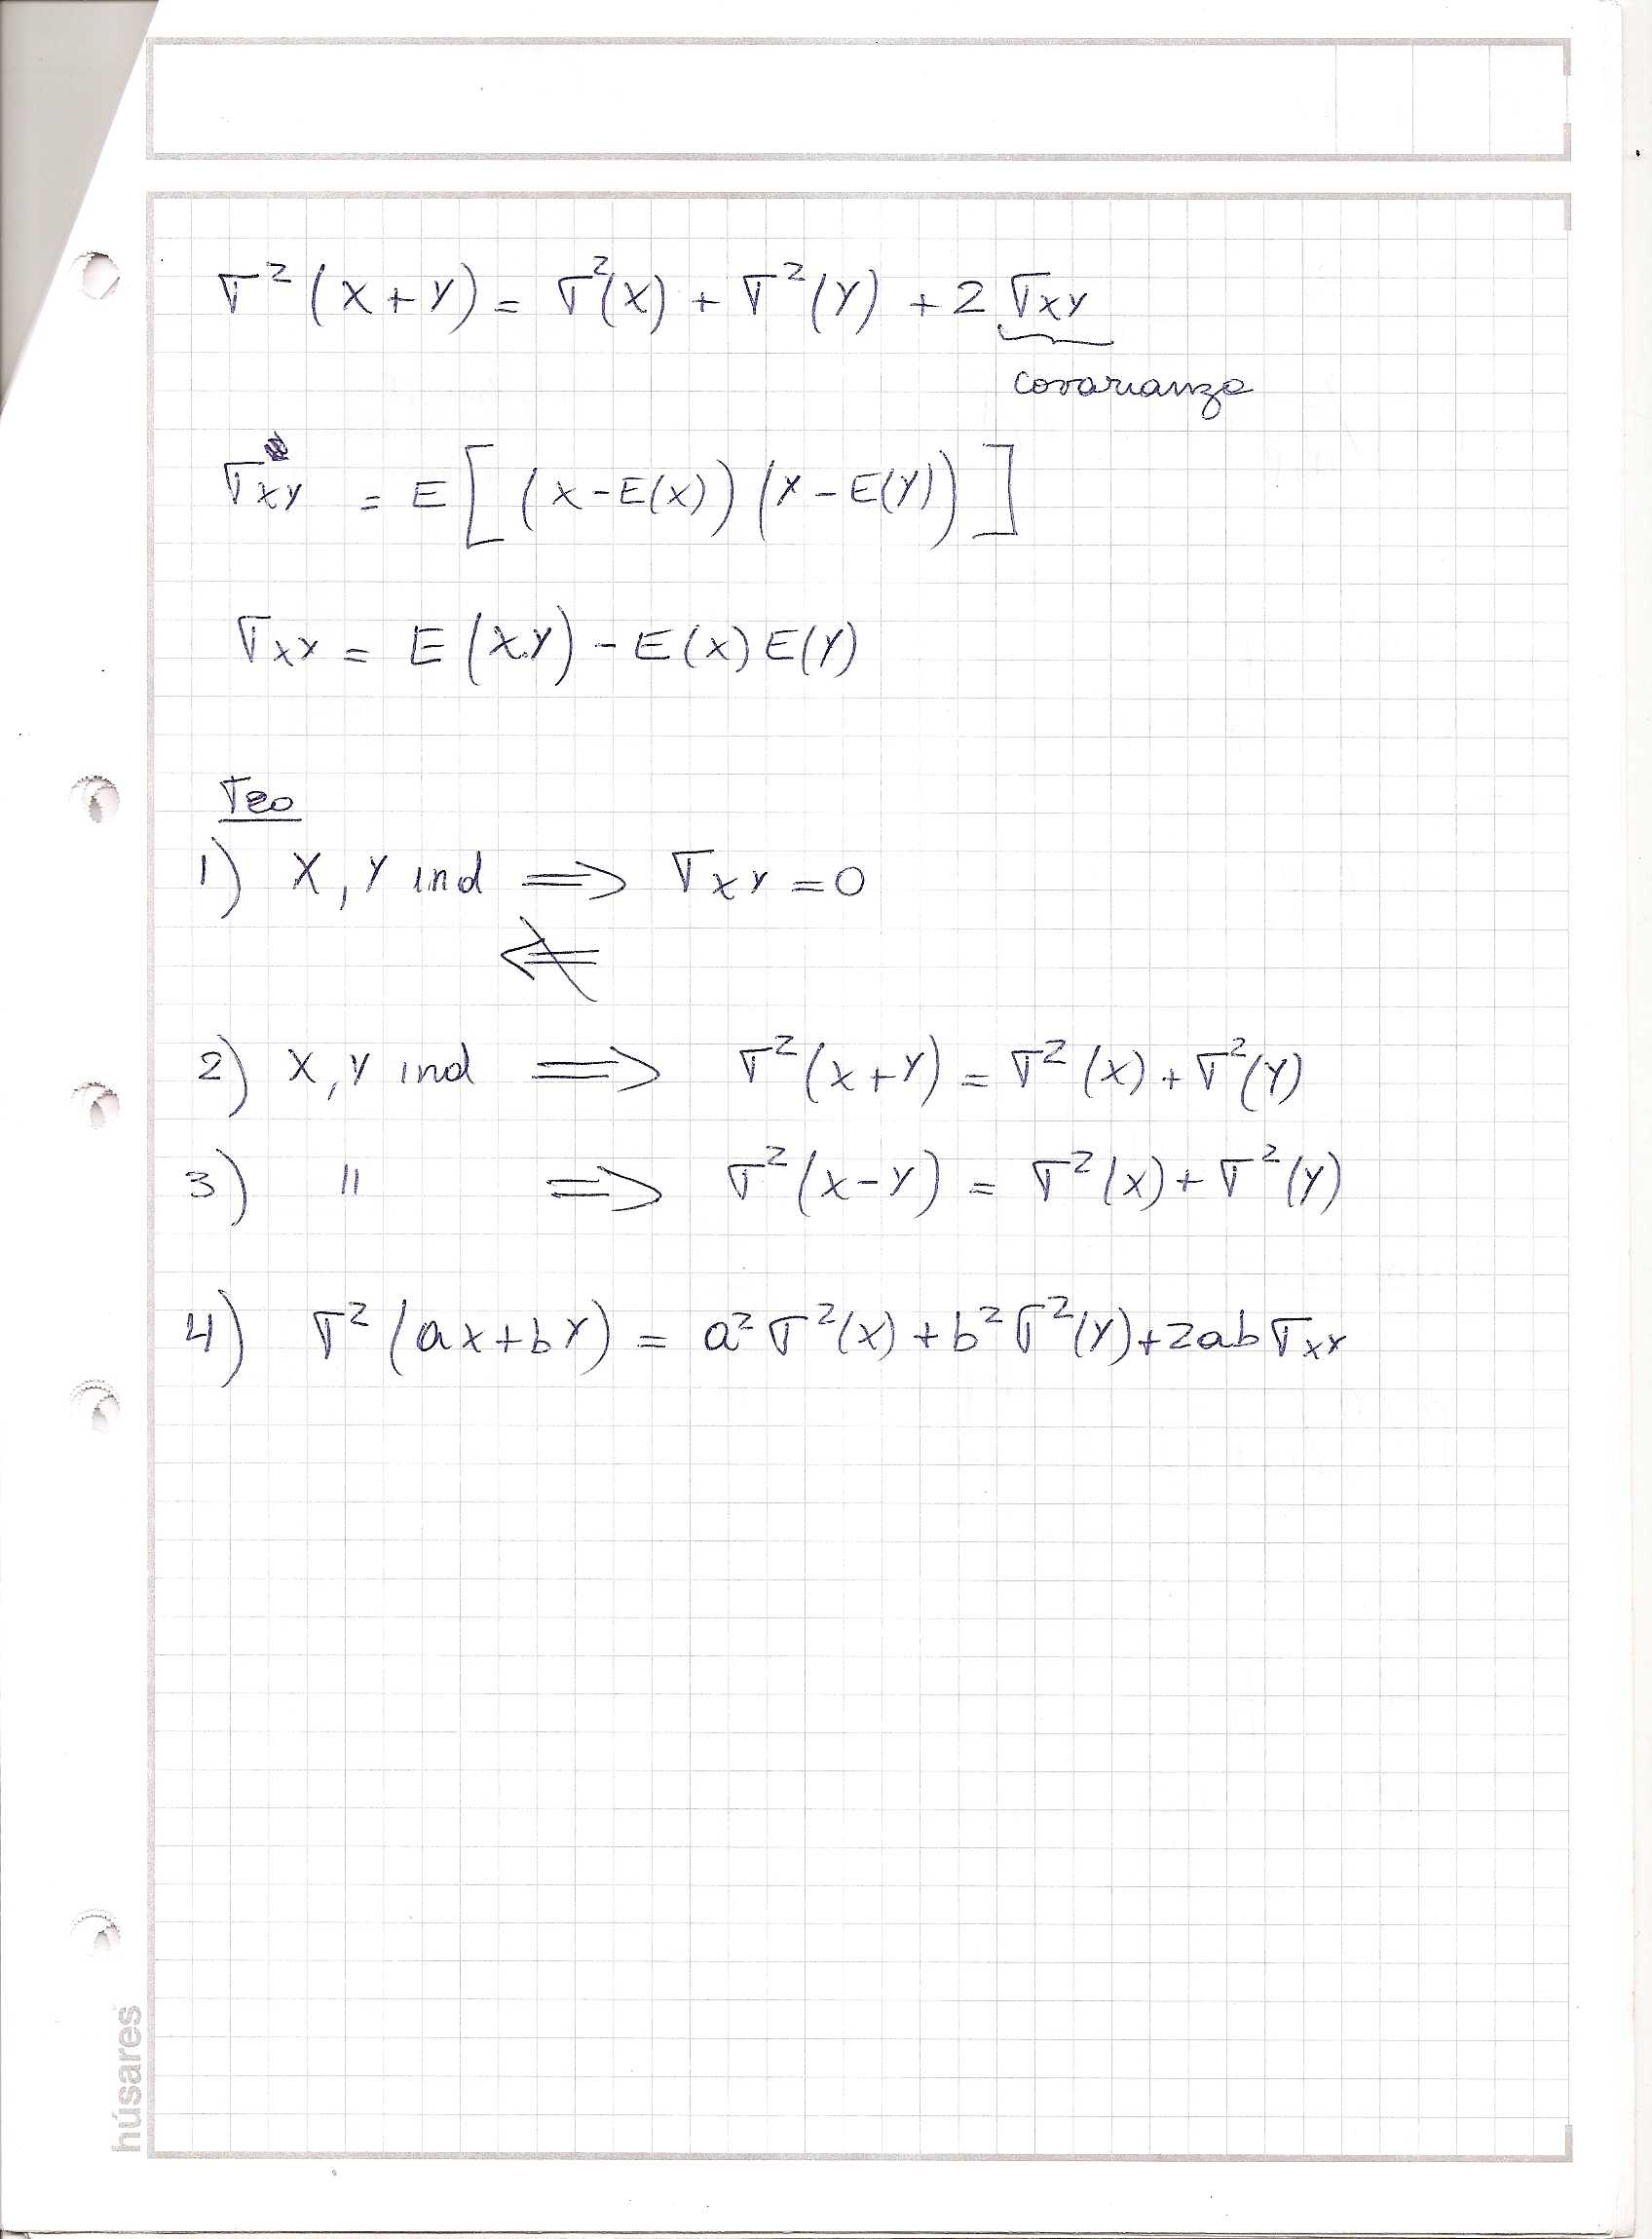 σ² (x + y) = σ²(x) + σ²(y) + 2 σxy
covarianza
σxy = E [ (x - E(x)) (y - E(y)) ]
σxy = E (x.y) - E(x) E(y)
Teo
1) X, Y ind ⟹ σxy = 0
⟸̸
2) X, Y ind ⟹ σ² (x + y) = σ² (x) + σ²(y)
3) " ⟹ σ² (x - y) = σ² (x) + σ² (y)
4) σ² (ax + by) = a² σ²(x) + b² σ²(y) + 2ab σxy
húsares